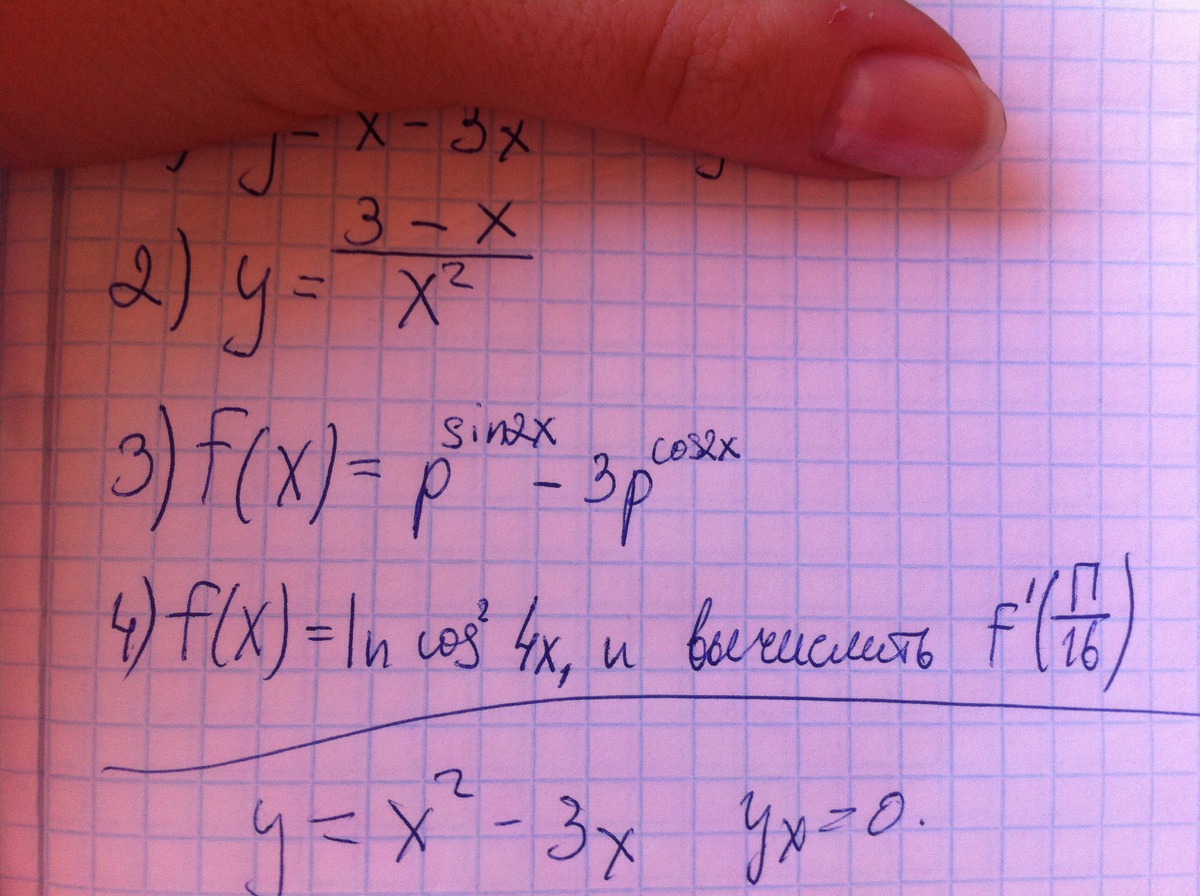 y = x - 3x
2) y = \frac{3 - x}{x^2}
3) f(x) = p^{sin2x} - 3p^{cos2x}
4) f(x) = ln cos^2 4x, и вычислить f'(\frac{П}{16})
y = x^2 - 3x    y_x = 0.